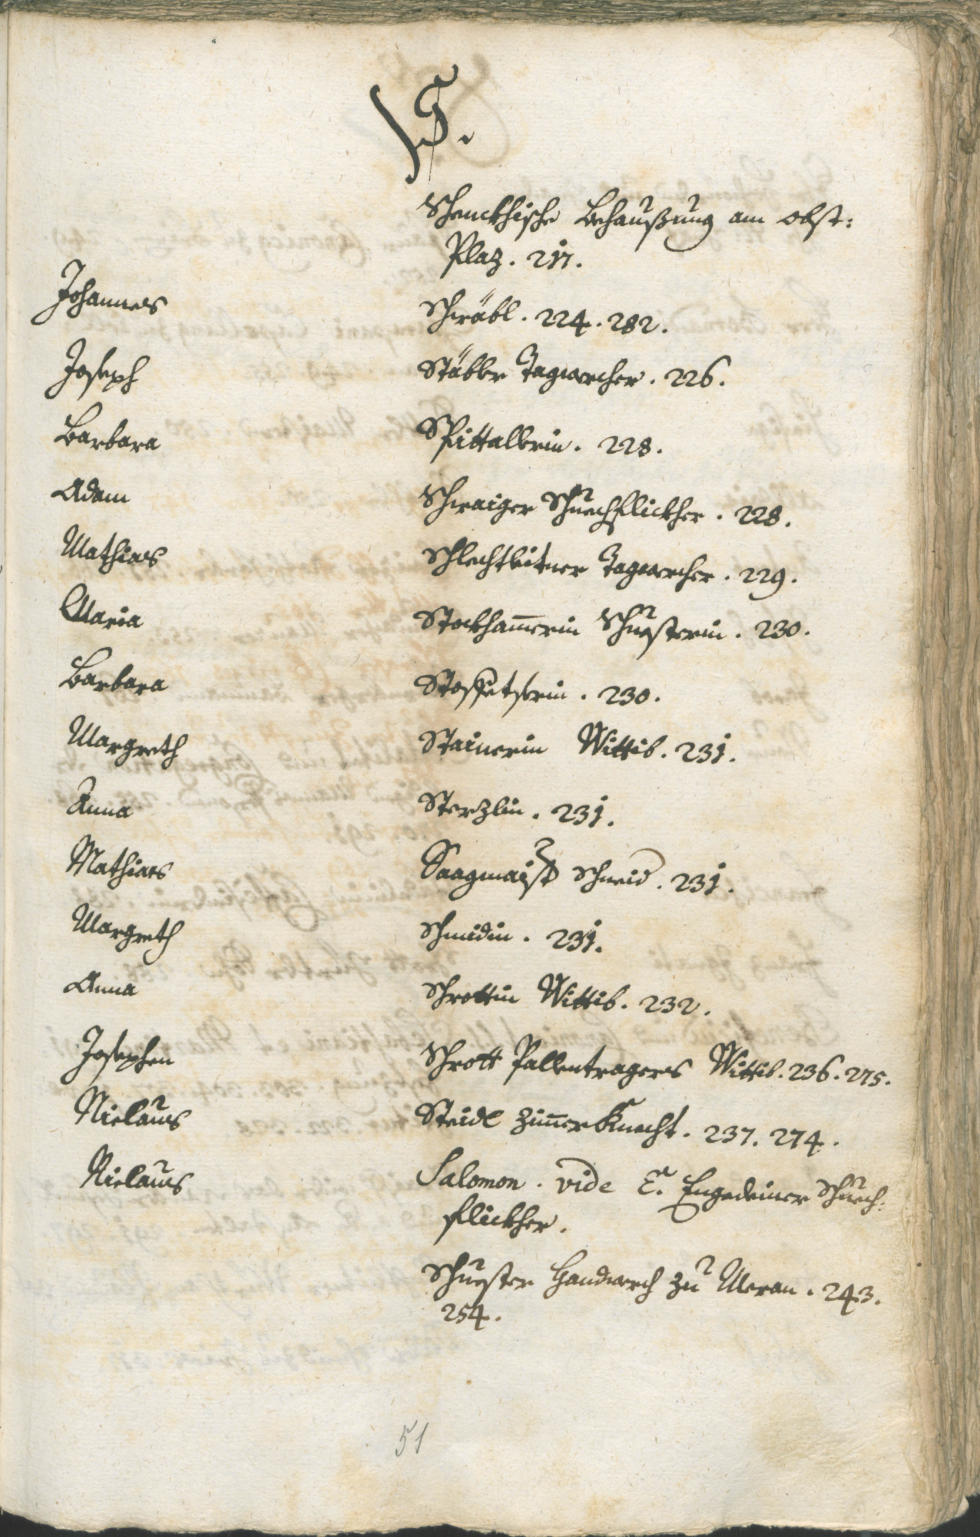 S.
Schenckhische Behaußung am obst:
Plaz. 217.
Johannes Schwäbl. 224. 282.
Joseph Stäbler Tagwercher. 226.
Barbara Spittallerin. 228.
Adam Schwaiger Schuechflickher. 228.
Mathias Schlechtleitner Tagwercher. 229.
Maria Stockhamerin Schuesterin. 230.
Barbara 230.
Margreth Stainerin Wittib. 231.
Anna Sterzlin. 231.
Mathias Saagmaister Schmid. 231.
Margreth Schmidin. 231.
Anna Schrottin Wittib. 232.
Josephen Schrott Pallentragers Wittib. 236. 275.
Niclaus Steidl Zimerknecht. 237. 274.
Niclaus Salomon. vide E. Engadeiner Schuech:
flickher.
Schuester Handwerch zu Meran. 243.
254.
51